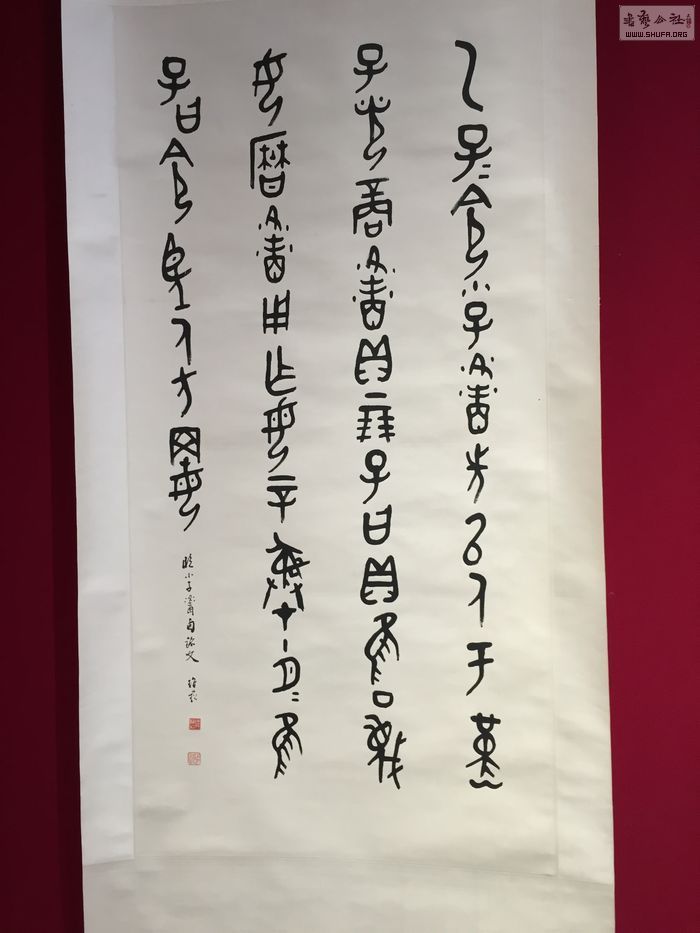 書藝公社
WWW.SHUFA.ORG
乙子=令小子先以人于堇
子光商貝二朋子曰貝唯蔑
女曆用乍母辛彝十月=隹
子曰令望人方
臨小子卣銘文